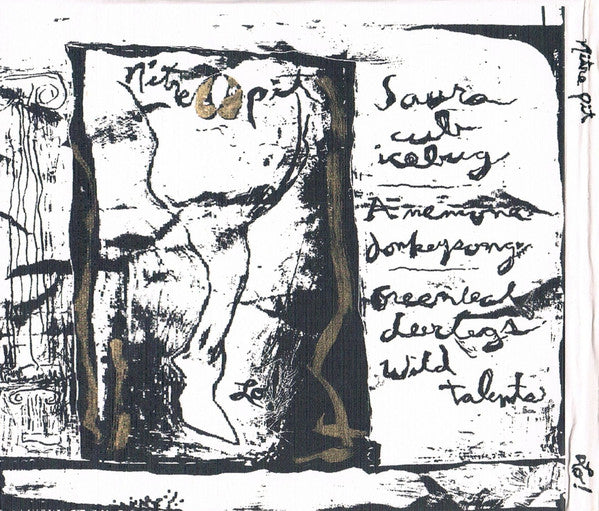 Nitre pit
Lo
Saura
cub
icebug
Anemona
donkeysong
Greenleaf
deerlegs
Wild
talents
Nitre pit
Lo!